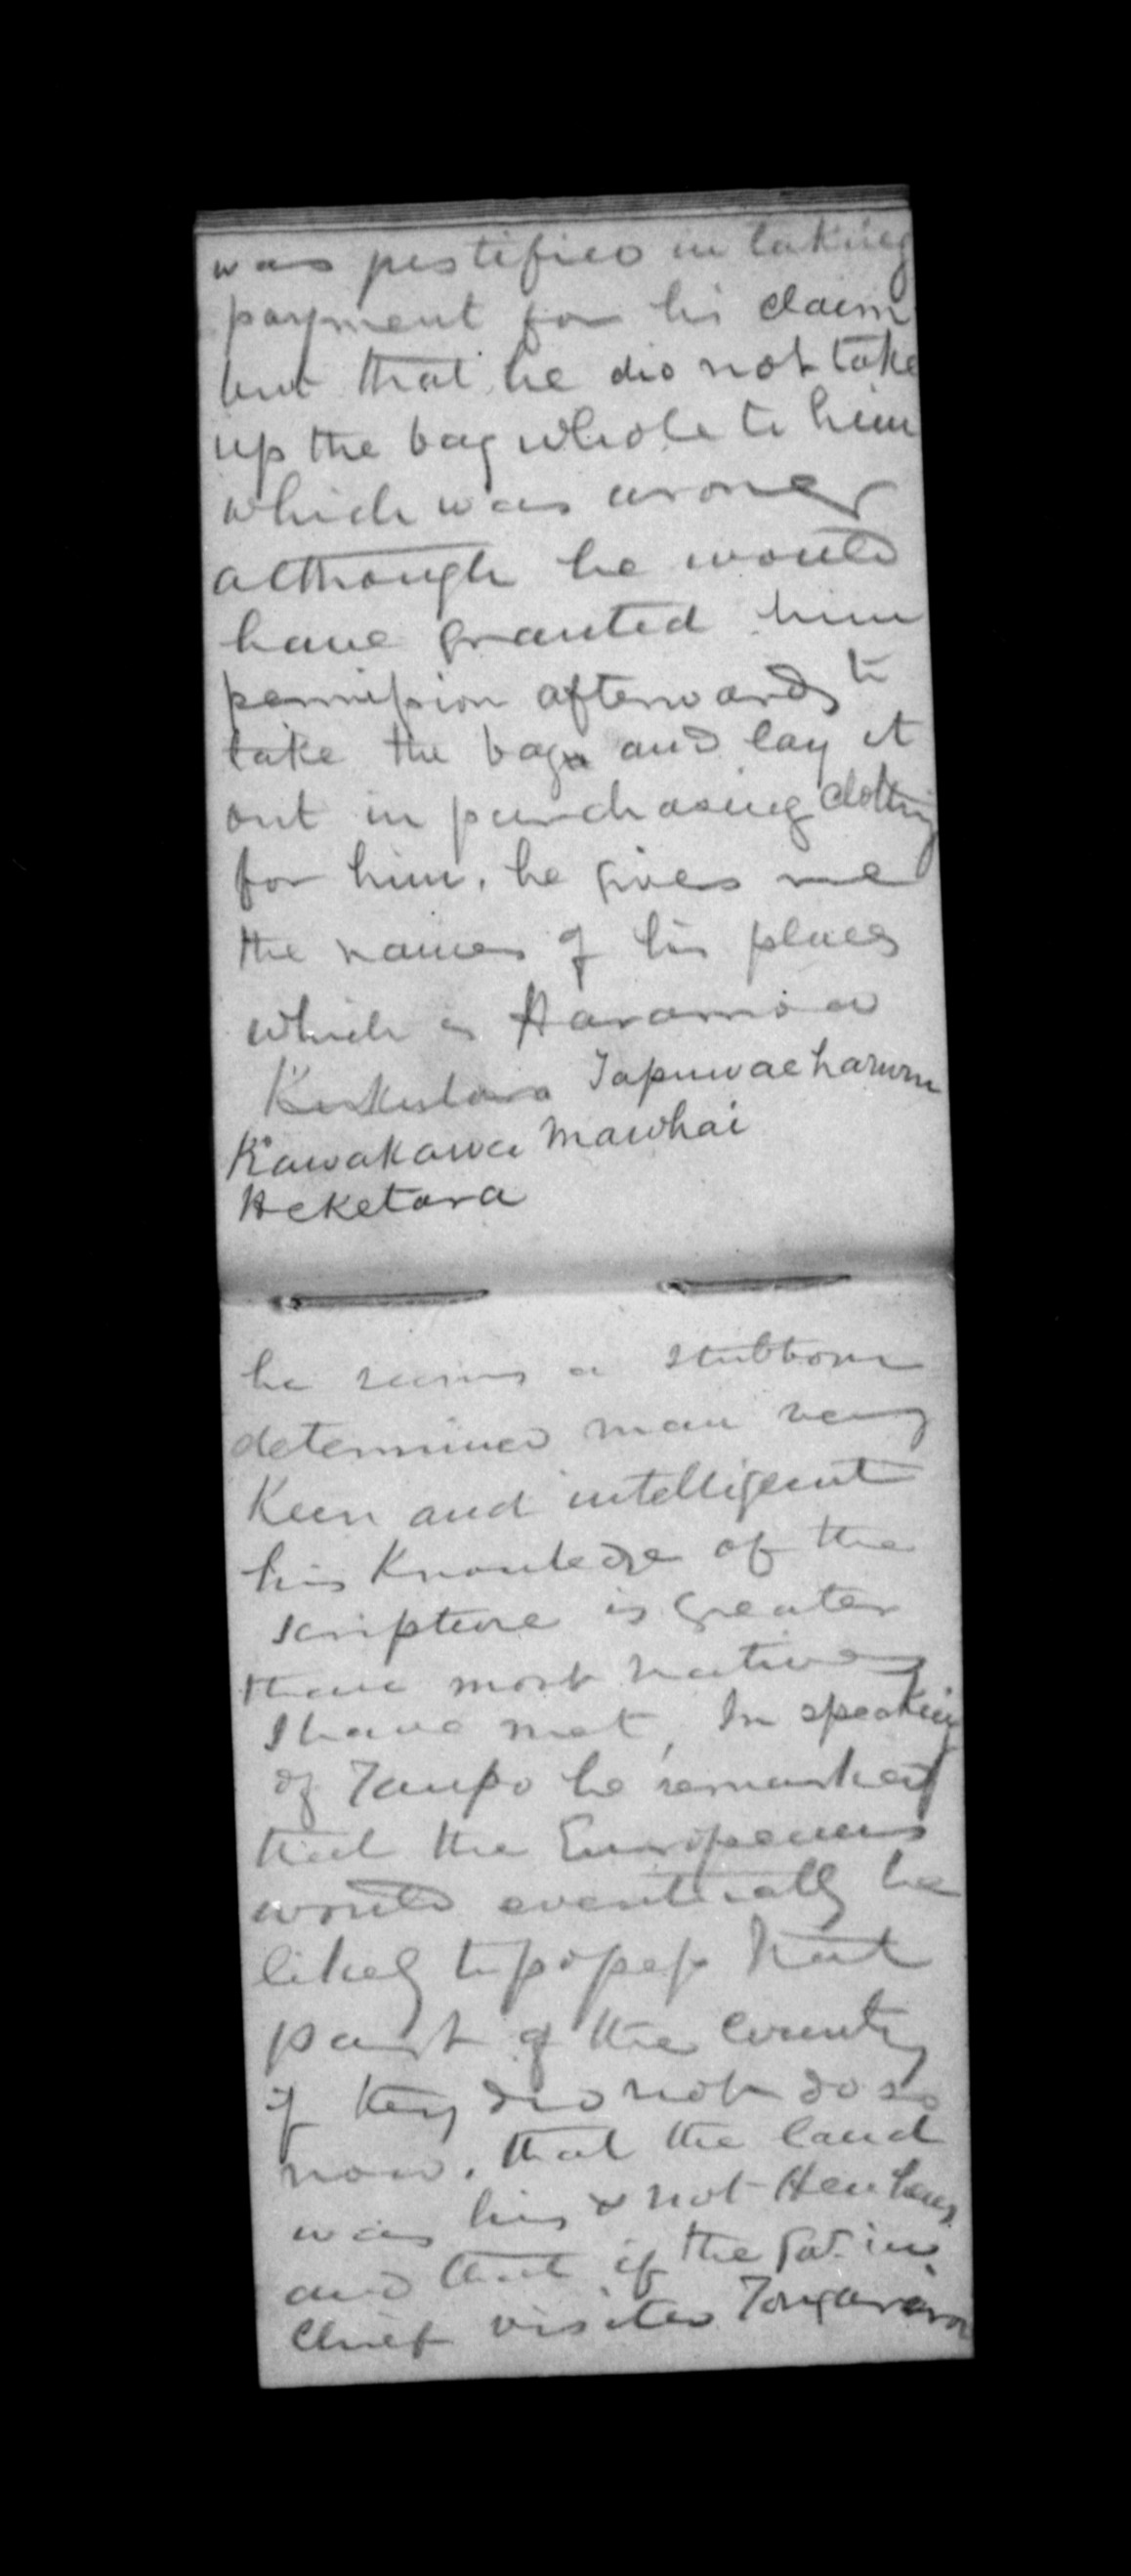 was justified in taking
payment for his claim
but that he did not take
up the bag whole to him
which was wrong
although he would
have granted him
permission afterwards to
take the bag and lay it
out in purchasing clothing
for him. he gives me
the names of his places
which is Haramoa
Tapuwaeharuru
Kawakawa Mawhai
Heketara
he seems a stubborn
determined man very
Keen and intelligent
his Knowledge of the
scripture is greater
than most natives
I have met, In speaking
of Taupo he remarked
that the Europeans
would eventually be
likely to possess that
part of the County
if they did not do so
now. that the land
was his & not Heu Heus
and that if the Gov. in
Chief visited Tongariro